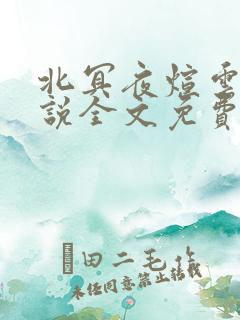 北冥夜煊雲
說全文免費
田二毛作
未經同意禁止轉載